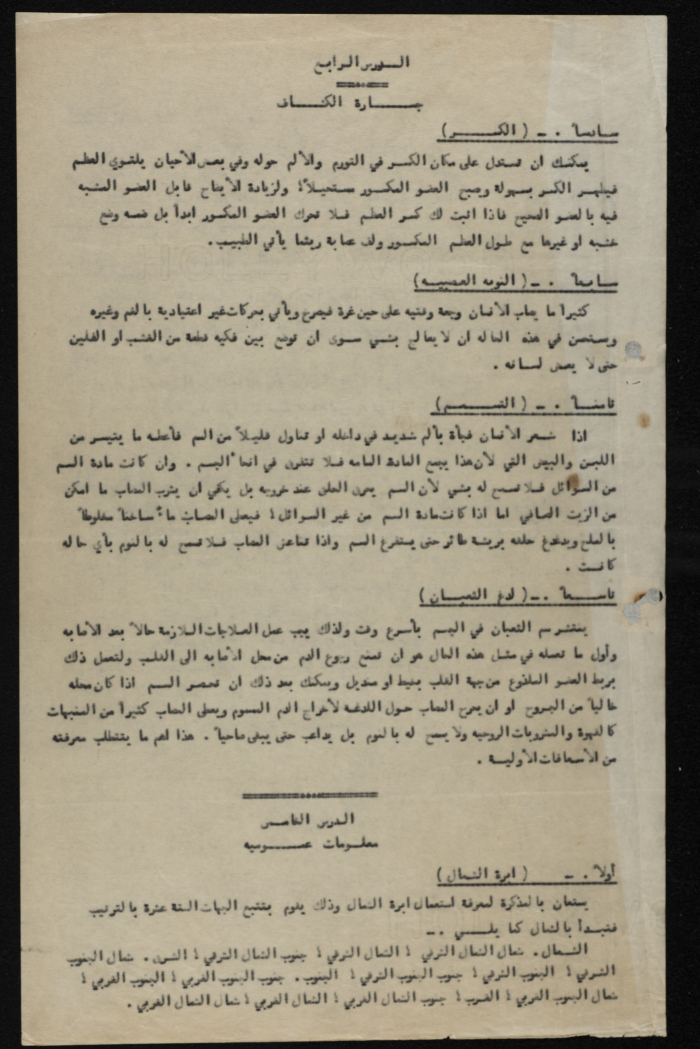 الـدرس الرابع
جـــــارة الكـــاف
سادساً . ــ ( الكـــــر )
يمكنك ان تستدل على مكان الكسر في التورم والألم حوله وفي بعض الأحيان يلتوي العظم
فيظهر الكسر بسهولة ويصبح العضو المكسور مستحيلاً؛ ولزيادة الأيضاح قابل العضو المشبه
فيه بالعضو الصحيح فاذا اثبت لك كسر العظم فلا تحرك العضو المكسور ابداً بل ضعه وضع
خشبه او غيرها مع طول العظم المكسور ولف عصابة ريثما يأتي الطبيب.
سابعاً . ــ ( النوبه العصبيه )
كثيراً ما يصاب الأنسان وبغتة وفتيه على حين غرة فيصرع ويأتي بحركات غير اعتيادية بالفم وغيره
ويستحسن في هذه الحاله ان لا يعالج بشي سوى ان توضع بين فكيه قطعة من الخشب او الفلين
حتى لا يعض لسانه .
ثامنـاً . ــ ( التســـم )
اذا شعر الأنسان فجأة بألم شديد في داخله او تناول قليلاً من السم فأعطه ما يتيسر من
اللبن والبيض التي لأن هذا يجمع المادة السامه فلا تتفرق في انحاء الجسم . وان كانت مادة السم
من السوائل فلا تسمح له بشي لأن السم يحرق الحلق عند خروجه بل يكفي ان يشرب المصاب ما امكن
من الزيت الصافي اما اذا كانت مادة السم من غير السوائل ؛ فيعطى المصاب ماءً ساخناً مخلوطاً
بالملح ويدغدغ حلقه بريشة طائر حتى يستفرغ السم واذا تناعس المصاب فلا تسمح له بالنوم بأي حاله
كانت .
تاسعـاً . ــ ( لدغ الثعبـان )
ينتشر سم الثعبان في الجسم بأسرع وقت ولذلك يجب عمل العلاجات اللازمة حالاً بعد الأصابه
وأول ما تعمله في مثل هذه الحال هو ان تمنع رجوع الدم من محل الأصابه الى القلب ولتعمل ذلك
بربط العضو الملدوغ من جهة القلب بخيط او منديل ويمكنك بعد ذلك ان تعصر السم اذا كان محله
خالياً من الجروح او ان يجرح المصاب حول اللدغه لأخراج الدم المسموم ويعطى المصاب كثيراً من المنبهات
كالقهوة والمشروبات الروحيه ولا يسمح له بالنوم بل يداعب حتى يبقى صاحياً . هذا اهم ما يتتطلب معرفته
من الأسعافات الأوليـة .
الدرس الخامس
معلـومات عمـــوميه
أولاً . ــ ( ابرة الشمال )
يستعان بالمذكرة لمعرفة استعمال ابرة الشمال وذلك يقوم بتتبع الجهات الستة عشرة بالترتيب
فتبـدأ بالشمال كما يلـــي . ــ
الشمـال . شمال الشمال الشرقي ؛ الشمال الشرقي ؛ جنوب الشمال الشرقي ؛ الشرق . شمال الجنوب
الشرقي ؛ الجنوب الشرقي ؛ جنوب الجنوب الشرقي ؛ الجنوب . جنوب الجنوب الغربي ؛ الجنوب الغربي ؛
شمال الجنوب الغربي ؛ الغرب ؛ جنوب الشمال الغربي ؛ الشمال الغربي ؛ شمال الشمال الغربي .